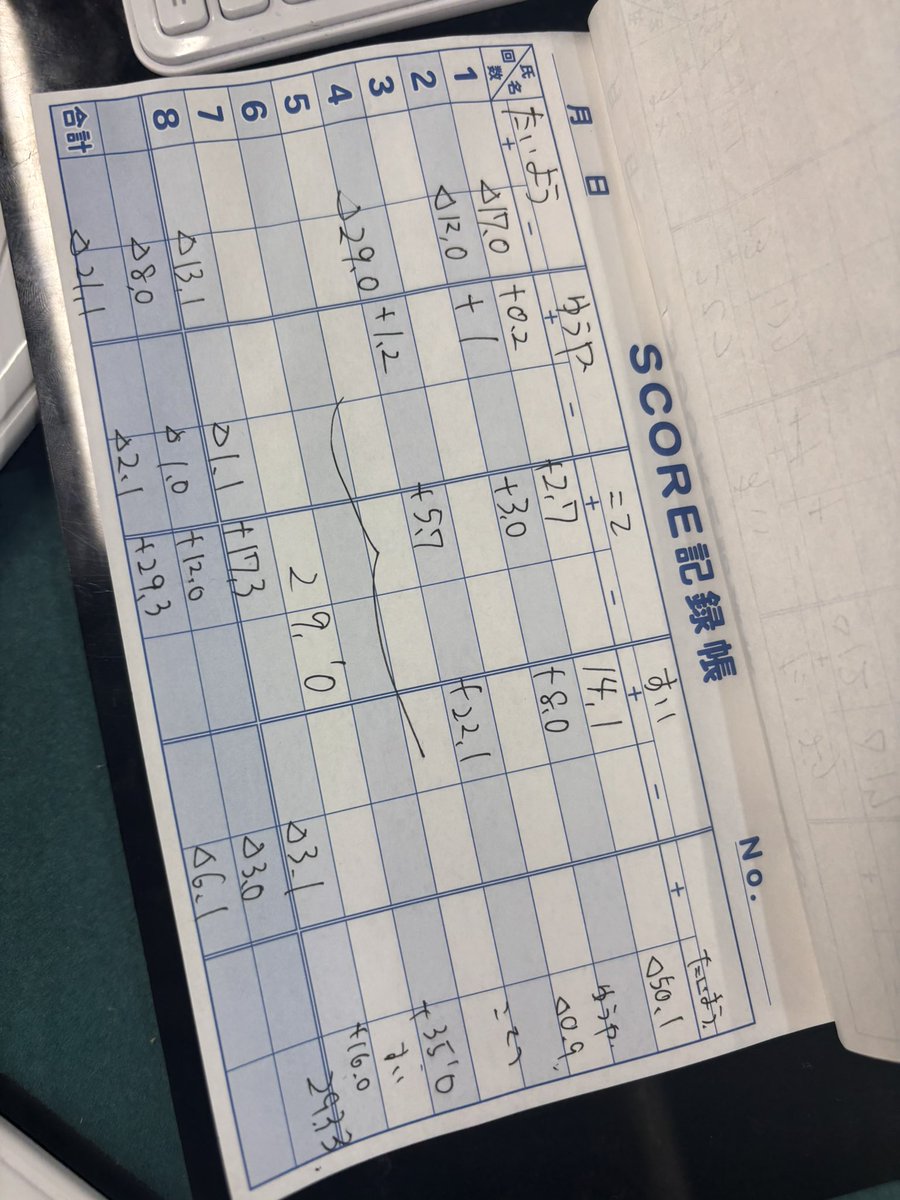 SCORE記録帳
No.
月 日
氏名 回数 たいよう ゆうや こころ すい たいよう
+ - + - + - + - +
1 △17.0 +0.2 +2.7 14.1 △50.1
2 △12.0 +1 +3.0 +8.0 ゆうや
3 △0.9
4 △29.0 +1.2 +5.7 +22.1
5 +35.0
6 すい
7 29.0 +16.0
8 △13.1 △1.1 +17.3 △3.1 293.3
△8.0 △1.0 +12.0 △3.0
合計 △21.1 △2.1 +29.3 △6.1